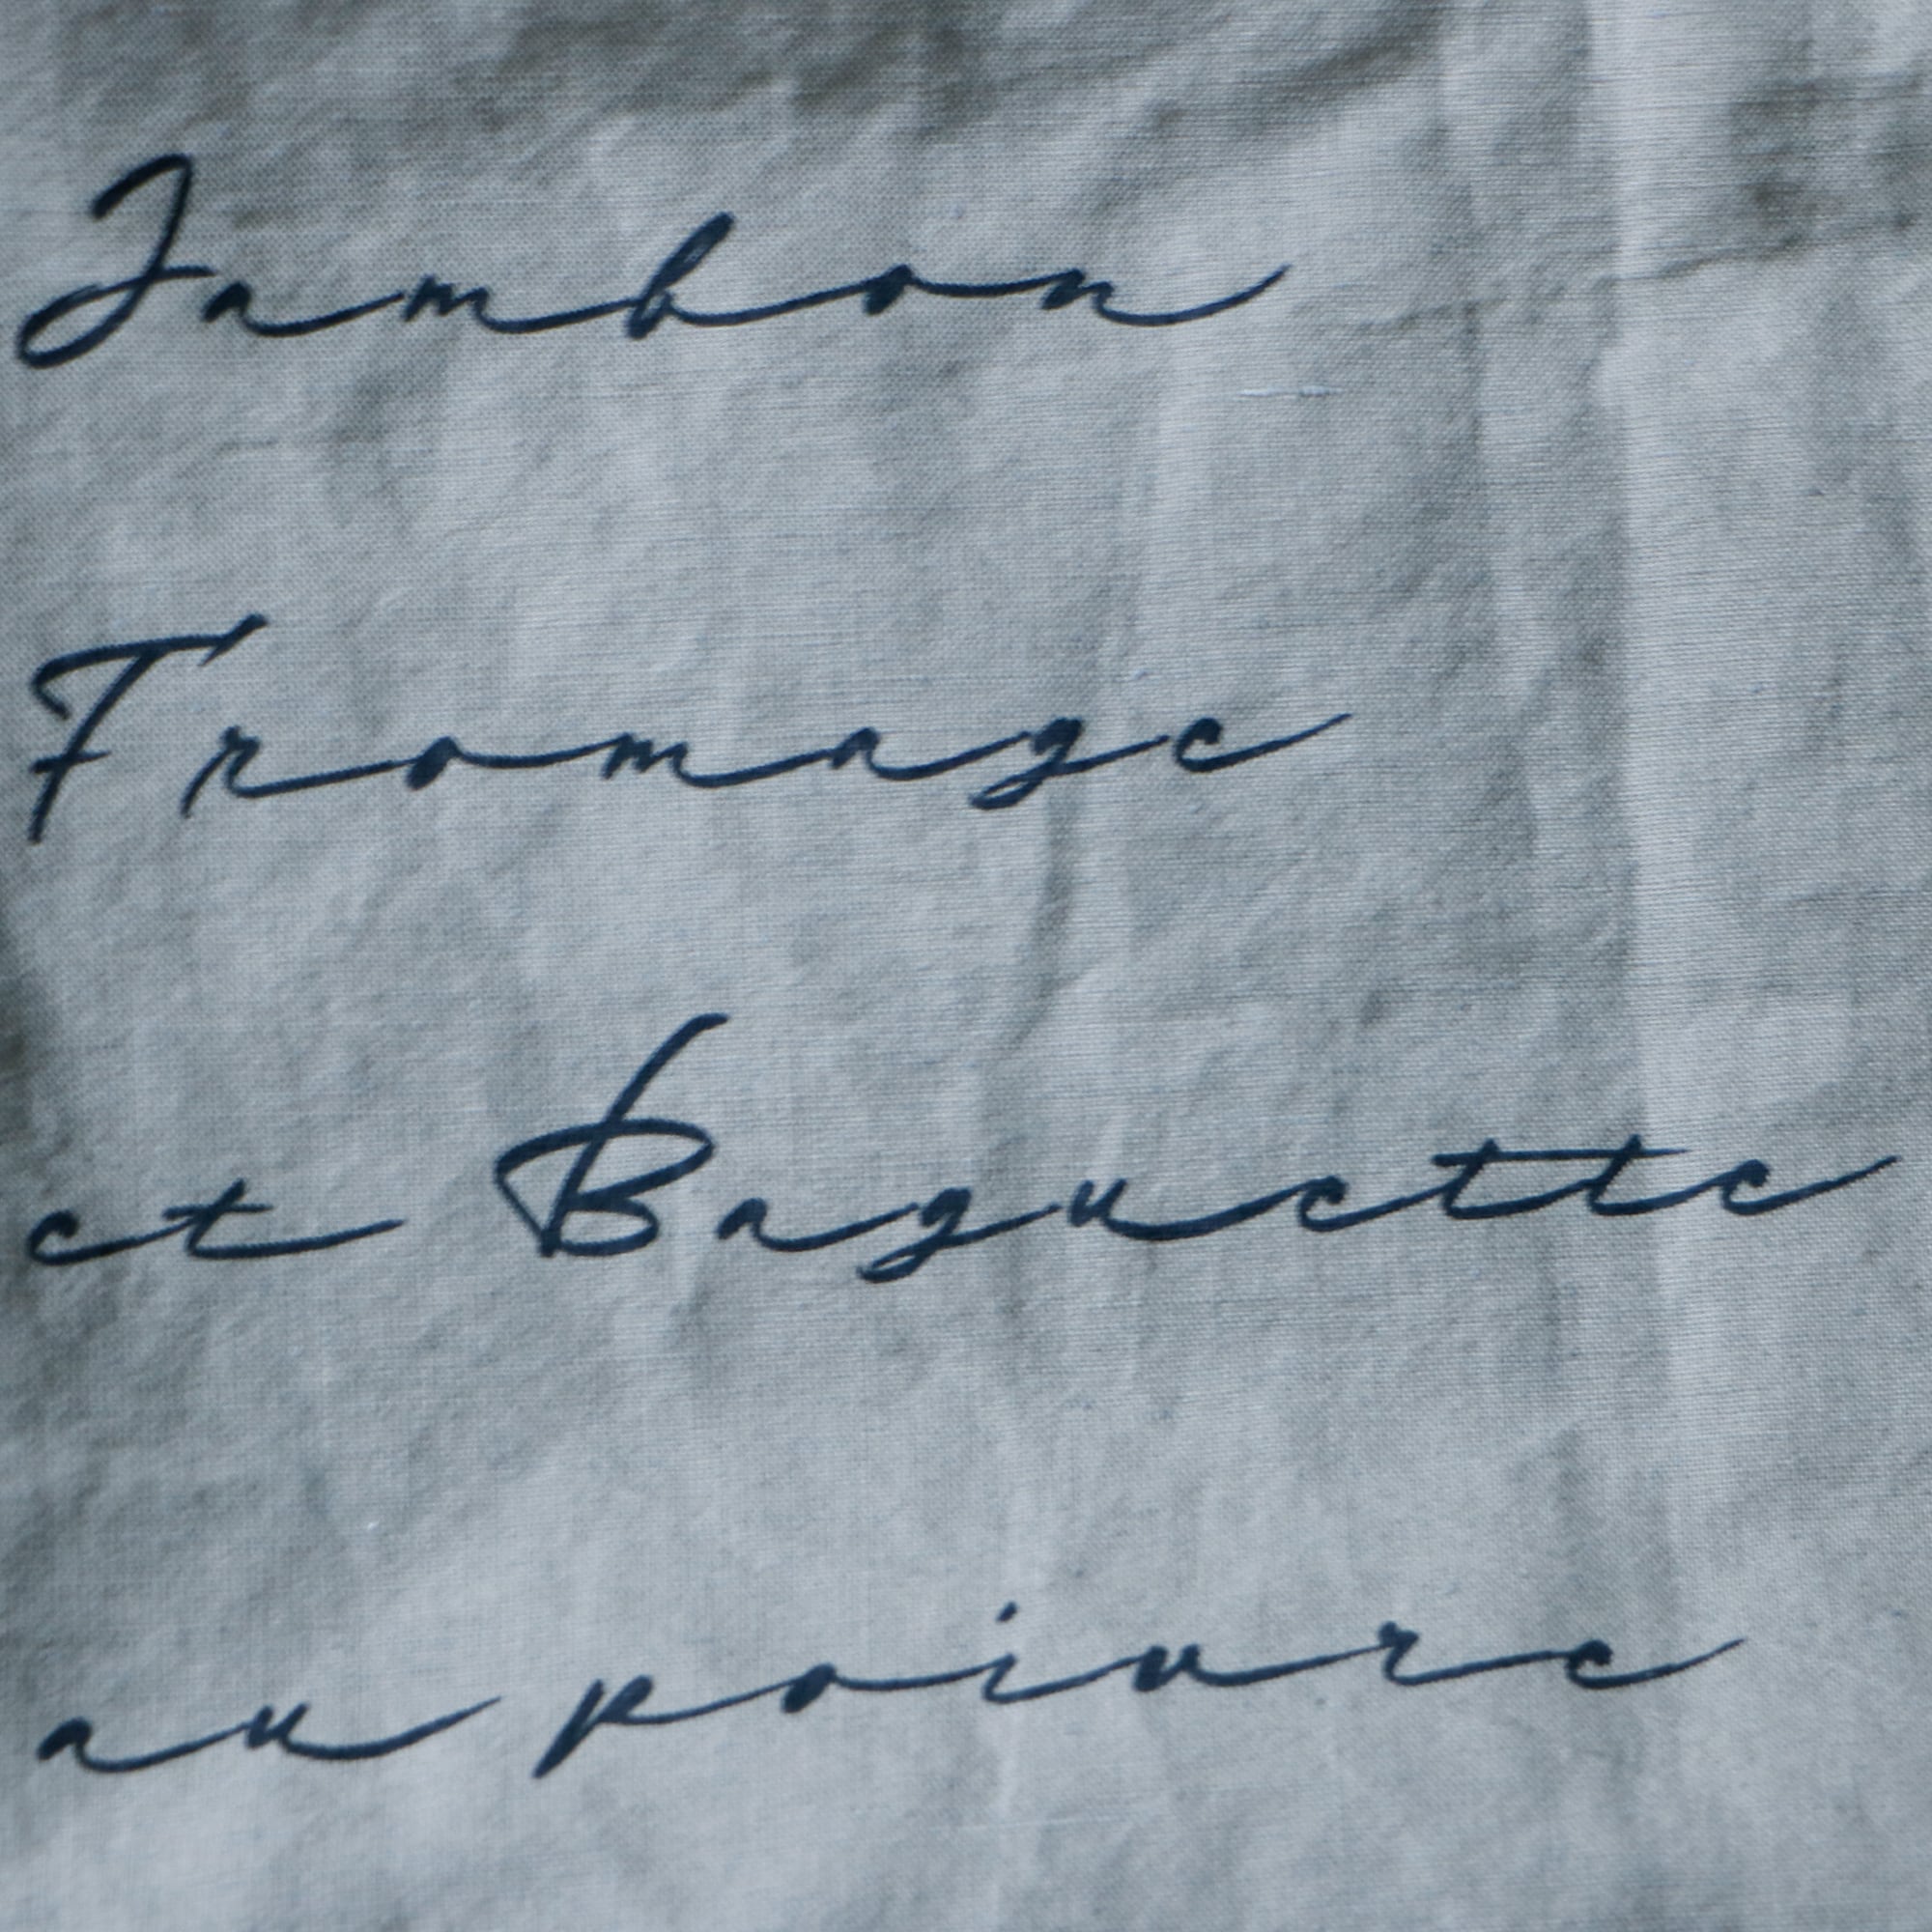 Jambon
Fromage
et Baguette
au poivre